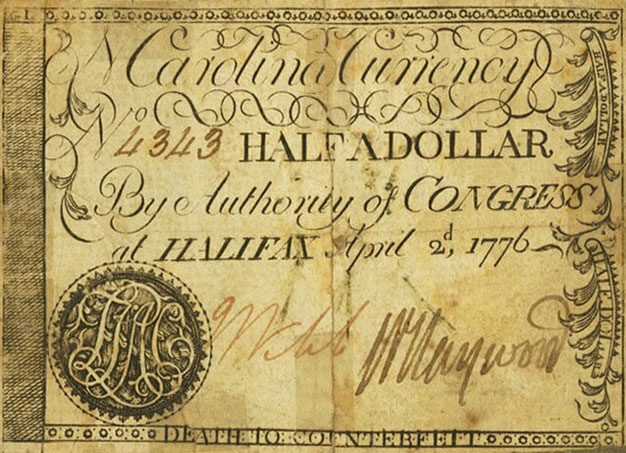 N Carolina Currency
No 4343 HALF A DOLLAR
By Authority of CONGRESS
at HALIFAX April 2d, 1776
HALF A DOLLAR
W Haywood
DEATH TO COUNTERFEIT